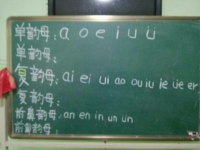 单韵母：a o e i u ü
单韵母：
复韵母：ai ei ui ao ou iu ie üe er
复韵母：
前鼻韵母：an en in un ün
前鼻韵母：